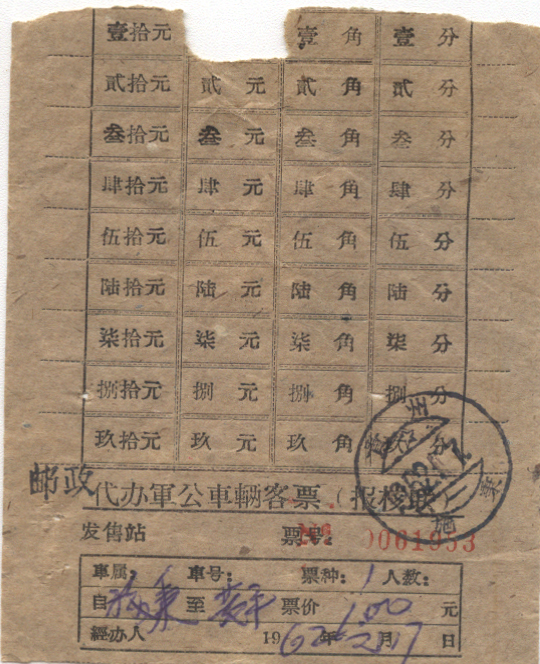 壹拾元 壹角 壹分
贰拾元 贰元 贰角 贰分
叁拾元 叁元 叁角 叁分
肆拾元 肆元 肆角 肆分
伍拾元 伍元 伍角 伍分
陆拾元 陆元 陆角 陆分
柒拾元 柒元 柒角 柒分
捌拾元 捌元 捌角 捌分
玖拾元 玖元 玖角 分
邮政代办軍公車輛客票（报
发售站 票号: 0061953
車属: 車号: 票种: 1 人数:
自 秉 至 票价 1.00 元
經办人 1962年2月17日